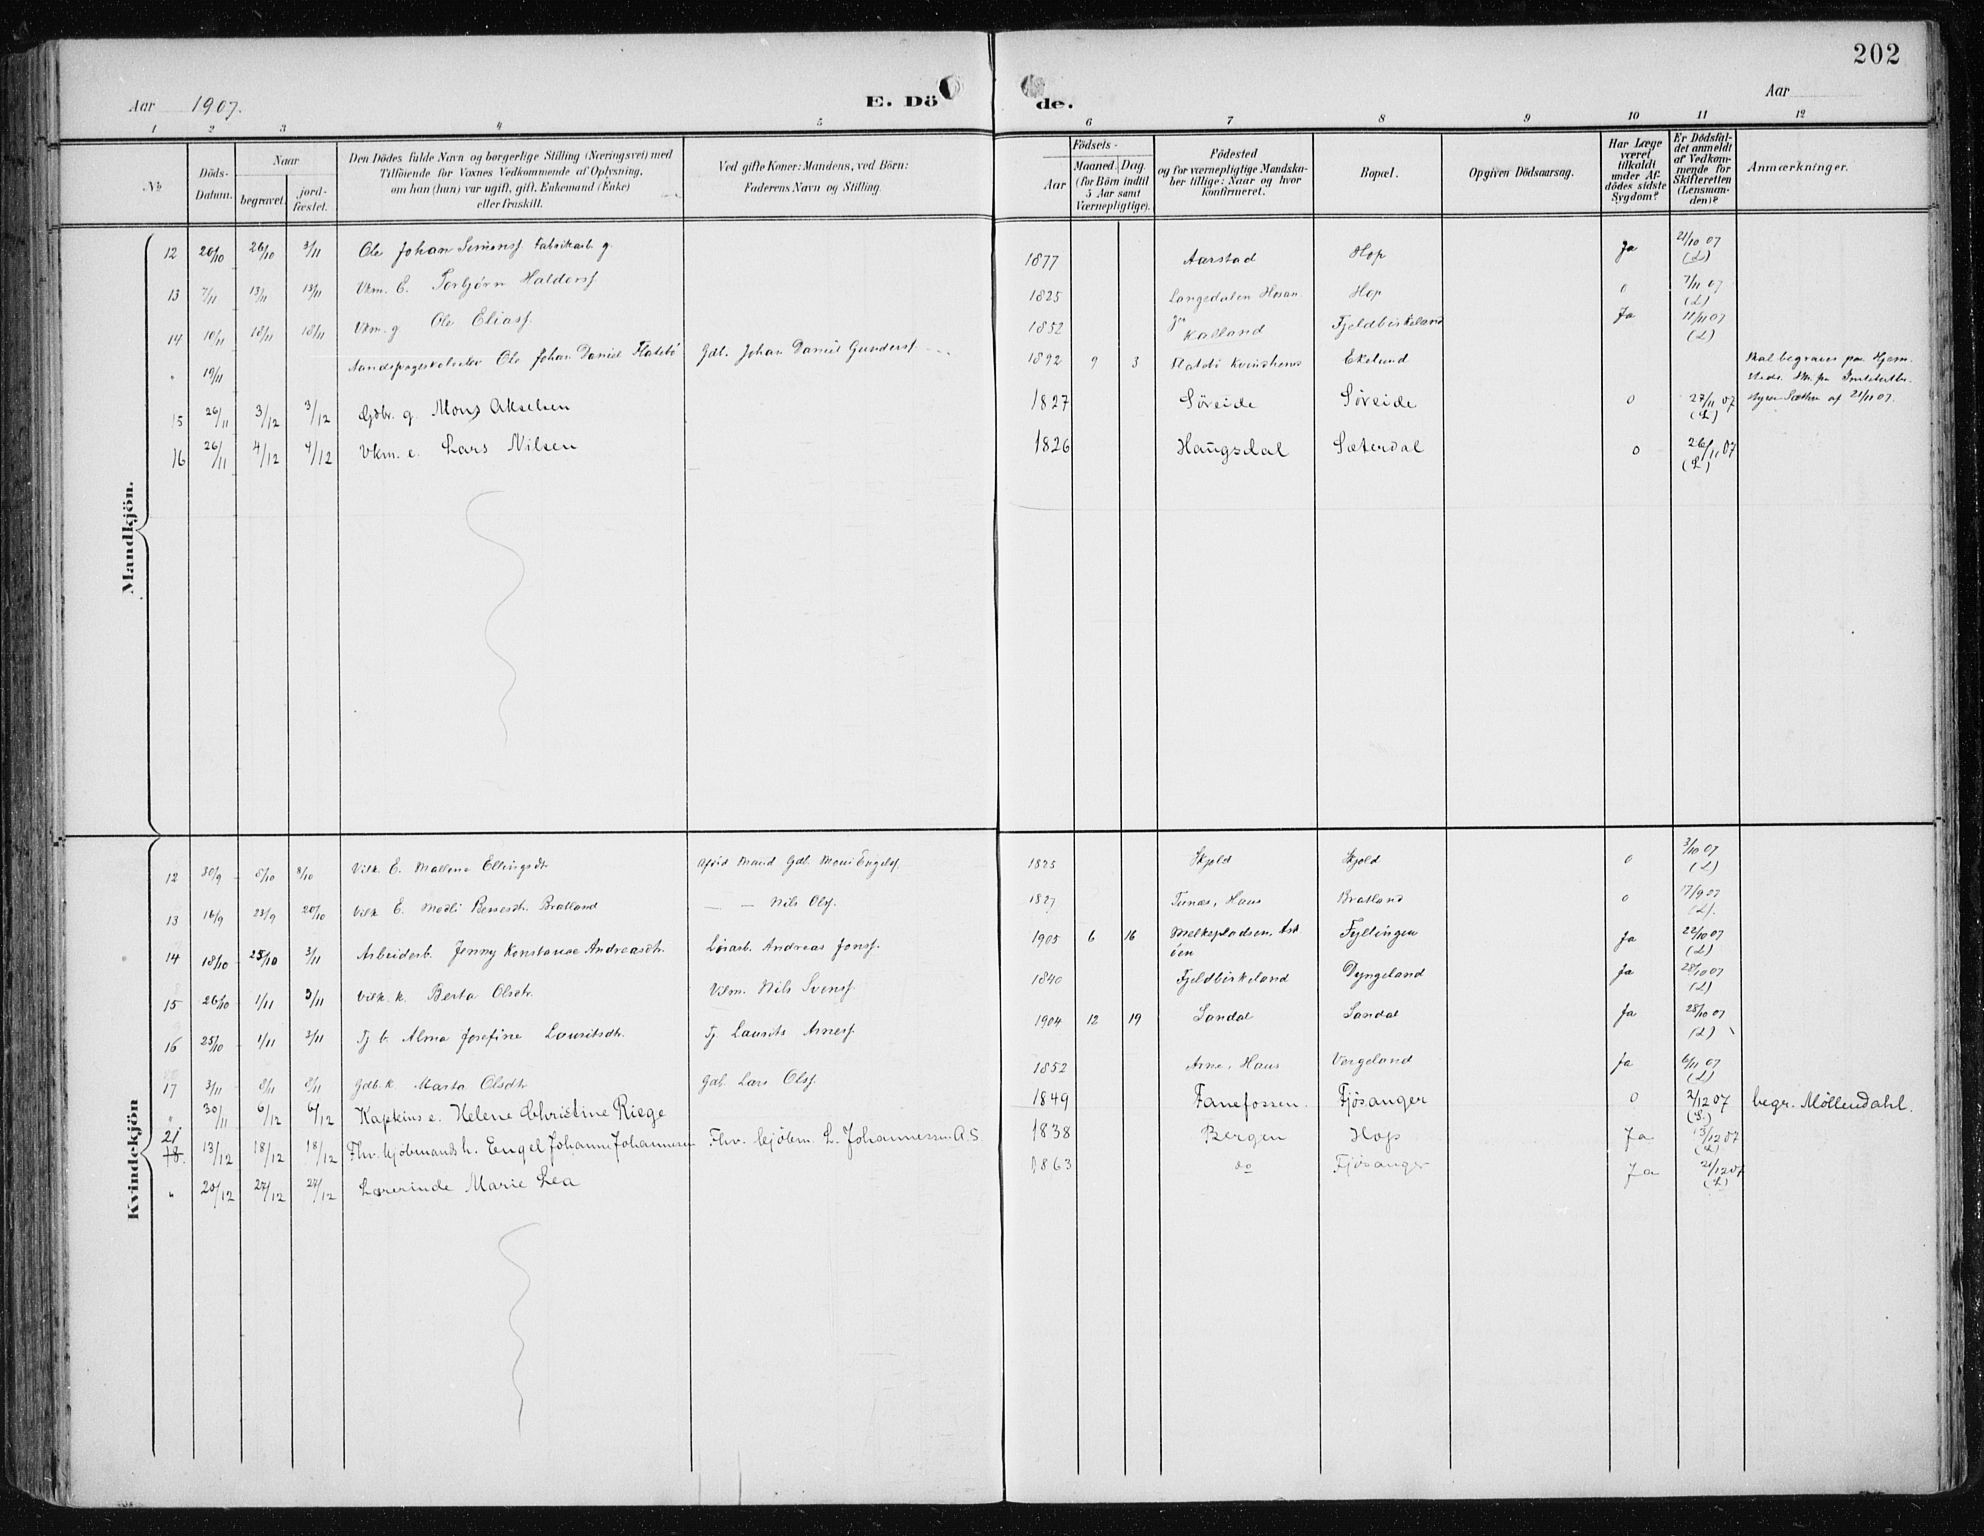 202
Aar 1907. E. Dö de. Aar
1 2 3 4 5 6 7 8 9 10 11 12
№ Döds-Datum. Naar begravet. jordfæstet. Den Dödes fulde Navn og borgerlige Stilling (Næringsvei) med Tilföiende for Voxnes Vedkommende af Oplysning, om han (hun) var ugift, gift, Enkemand (Enke) eller fraskilt. Ved gifte Koner: Mandens, ved Börn: Faderens Navn og Stilling. Födsels- Aar Maaned. Dag. (for Börn indtil 5 Aar samt Værnepligtige). Födested og for værnepligtige Mandskaber tillige: Naar og hvor konfirmeret. Bopæl. Opgiven Dödsaarsag. Har Læge været tilkaldt under Afdödes sidste Sygdom? Er Dödsfaldet anmeldt af Vedkommende for Skifteretten (Lensmanden)? Anmærkninger.
Mandkjön.
12 20/10 26/10 3/11 Ole Johan Simons. Fabrikarb. g. 1877 Aarstad Hop Ja 21/10 07 (L)
13 7/11 13/11 13/11 Vkm. E. Torbjørn Haldors. 1825 Langedalen Hosan. Hop 0 7/11 07 (L)
14 10/11 18/11 18/11 Vkm. g. Ole Elias. 1852 Kalland Fjeldbirkeland Ja 11/11 07 (L)
" 19/11 Aandssvageskoleelev Ole Johan Daniel Flatebö Gdb. Johan Daniel Gunders. 1892 9 3 Flatebö Kvinsherred Ekelund Skal begraves paa Hjemstedet.
15 26/11 3/12 3/12 Gdbr. g. Mons Akselsen 1827 Søreide Søreide 0 27/11 07 (L) af 21/11 07.
16 26/11 4/12 4/12 Vkm. e. Lars Nilsen 1826 Haugsdal Sæterdal 0 26/11 07 (L)
Kvindekjön
12 30/9 8/10 8/10 Vilk. E. Mallene Ellingsdtr. Afdød Mand Gdb. Mons Engels. 1825 Skjold Skjold 0 3/10 07 (L)
13 16/9 23/9 20/10 Vilk. E. Madli Bersesdtr. Bratland — — Nils Ols. 1827 Tunæs, Haus Bratland 0 17/9 07 (L).
14 18/10 25/10 3/11 Arbeiderb. Jenny Konstanse Andreasdtr. Løsarb. Andreas Jons. 1905 6 16 Melkepladsen, Askøen Fyllingen Ja 22/10 07 (L)
15 26/10 1/11 3/11 Vilk. k. Berta Olsdtr. Vilm. Nils Svens. 1840 Fjeldbirkeland Dyngeland Ja 28/10 07 (L)
16 25/10 1/11 3/11 Tj. b. Alma Josefine Lauritsdtr. Tj. Laurits Arnes. 1904 12 19 Sandal Sandal Ja 28/10 07 (L)
17 3/11 8/11 8/11 Gdb. k. Marta Olsdtr. Gdb. Lars Ols. 1852 Arne, Haus Vergeland Ja 6/11 07 (L)
" 30/11 6/12 6/12 Kapteins e. Helene Christine Riege 1849 Fanefossen. Fjøsanger 0 2/12 07 (L) begr. Möllendahl.
21 18. 13/12 18/12 18/12 Fhv. kjøbmands h. Engel Johanne Johannesen Fhv. kjøbm. L. Johannessen A.S. 1838 Bergen Hop Ja 13/12 07 (L)
" 20/12 27/12 27/12 Lærerinde Marie Lea 1863 do Fjøsanger Ja 21/12 07 (L)